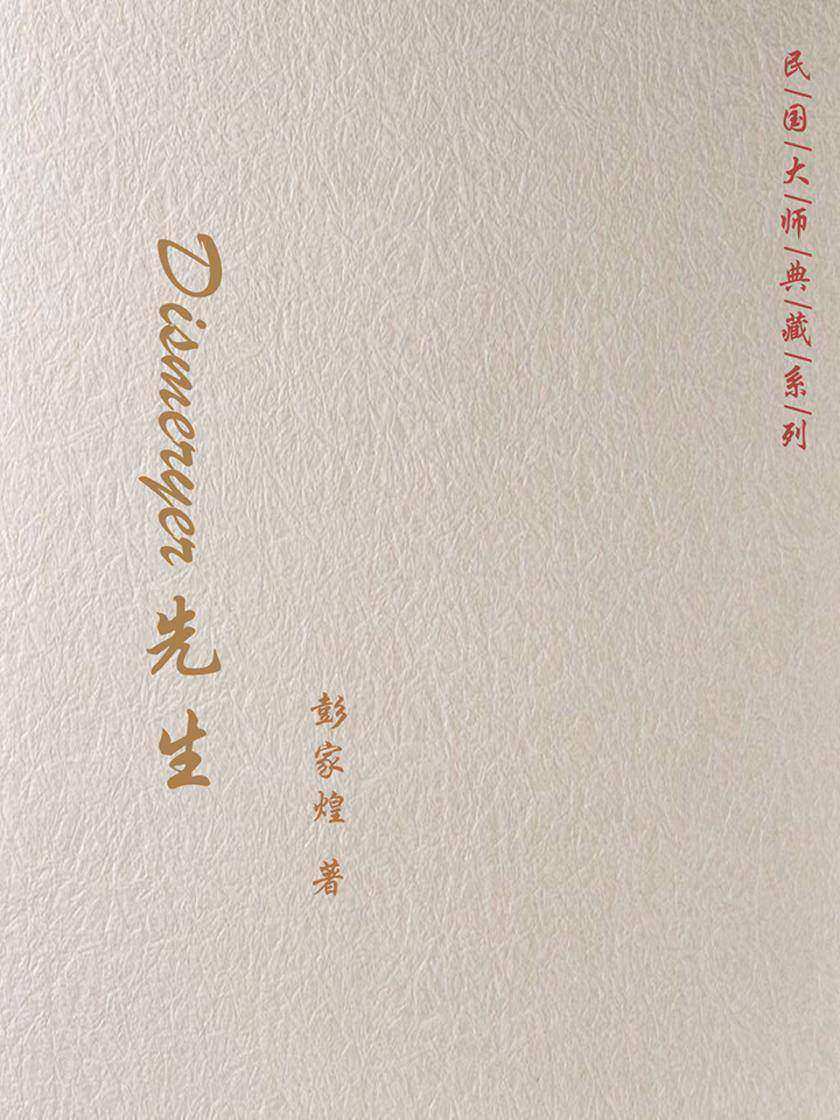 民国大师典藏系列
Dismeryer先生
彭家煌 著